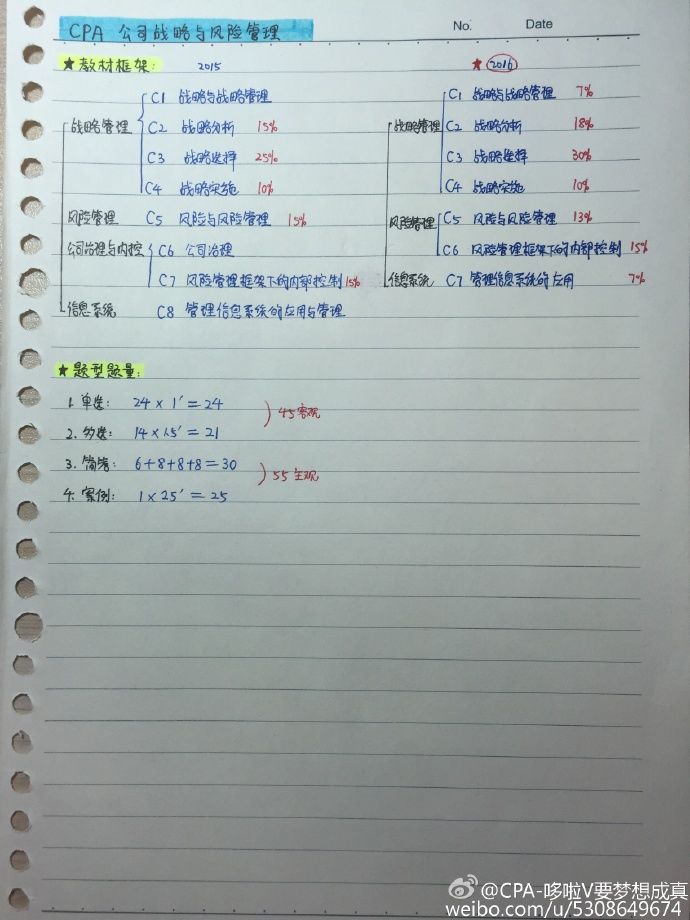 CPA 公司战略与风险管理
No. Date
★教材框架: 2015 ★ 2016
C1 战略与战略管理 C1 战略与战略管理 7%
战略管理 C2 战略分析 15% 战略管理 C2 战略分析 18%
C3 战略选择 25% C3 战略选择 30%
C4 战略实施 10% C4 战略实施 10%
风险管理 C5 风险与风险管理 15% 风险管理 C5 风险与风险管理 13%
公司治理与内控 C6 公司治理 C6 风险管理框架下的内部控制 15%
C7 风险管理框架下的内部控制 15% 信息系统 C7 管理信息系统的应用 7%
信息系统 C8 管理信息系统的应用与管理
★题型题量:
1. 单选: 24×1'=24
)45客观
2. 多选: 14×1.5'=21
3. 简答: 6+8+8+8=30
)55主观
4. 案例: 1×25'=25
@CPA-哆啦V要梦想成真
weibo.com/u/5308649674